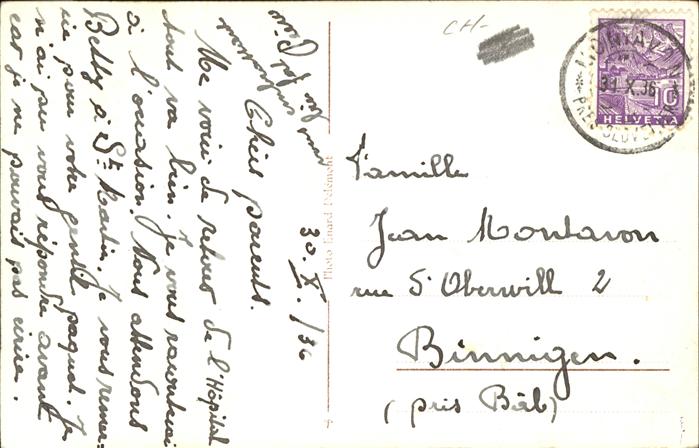 30. X. /36
Chers parents.
Me voici de retour de l'Hôpital
tout va bien. Je vous raconterai
à l'occasion. Nous attendons
Betty à St. Martin. Je vous remer-
cie pour votre gentil paquet. Je
n'ai pu vous répondre avant
car je ne pouvais pas écrire.
Photo Enard Delémont
CH-
31.X.36
PRÈS GLOVELIER
10
HELVETIA
Famille
Jean Montavon
rue d'Oberwill 2
Binnigen.
(près Bâle)